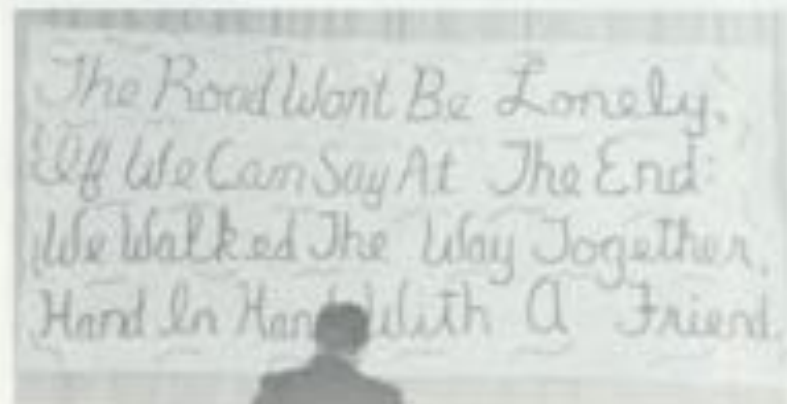 The Road Wont Be Lonely,
If We Can Say At The End:
We Walked The Way Together,
Hand In Hand With A Friend.